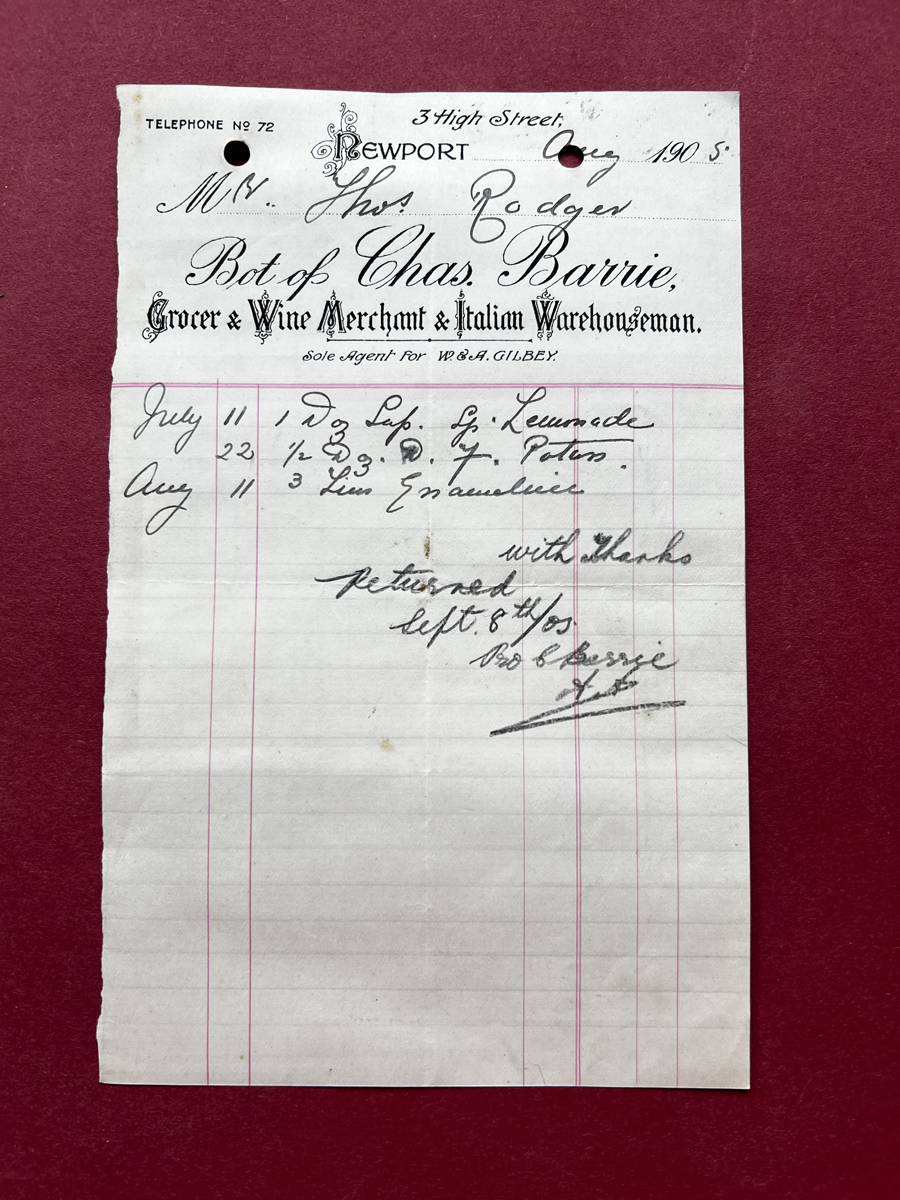 TELEPHONE Nº 72
3 High Street,
NEWPORT Aug 1905
Mr. Thos Rodger
Bot of Chas. Barrie,
Grocer & Wine Merchant & Italian Warehouseman.
Sole Agent For W. & A. GILBEY.
July 11 1 Doz Lemonade
22 ½ Doz.
Aug 11 3
with Thanks
Returned
Sept. 8th/05
Pro C Barrie